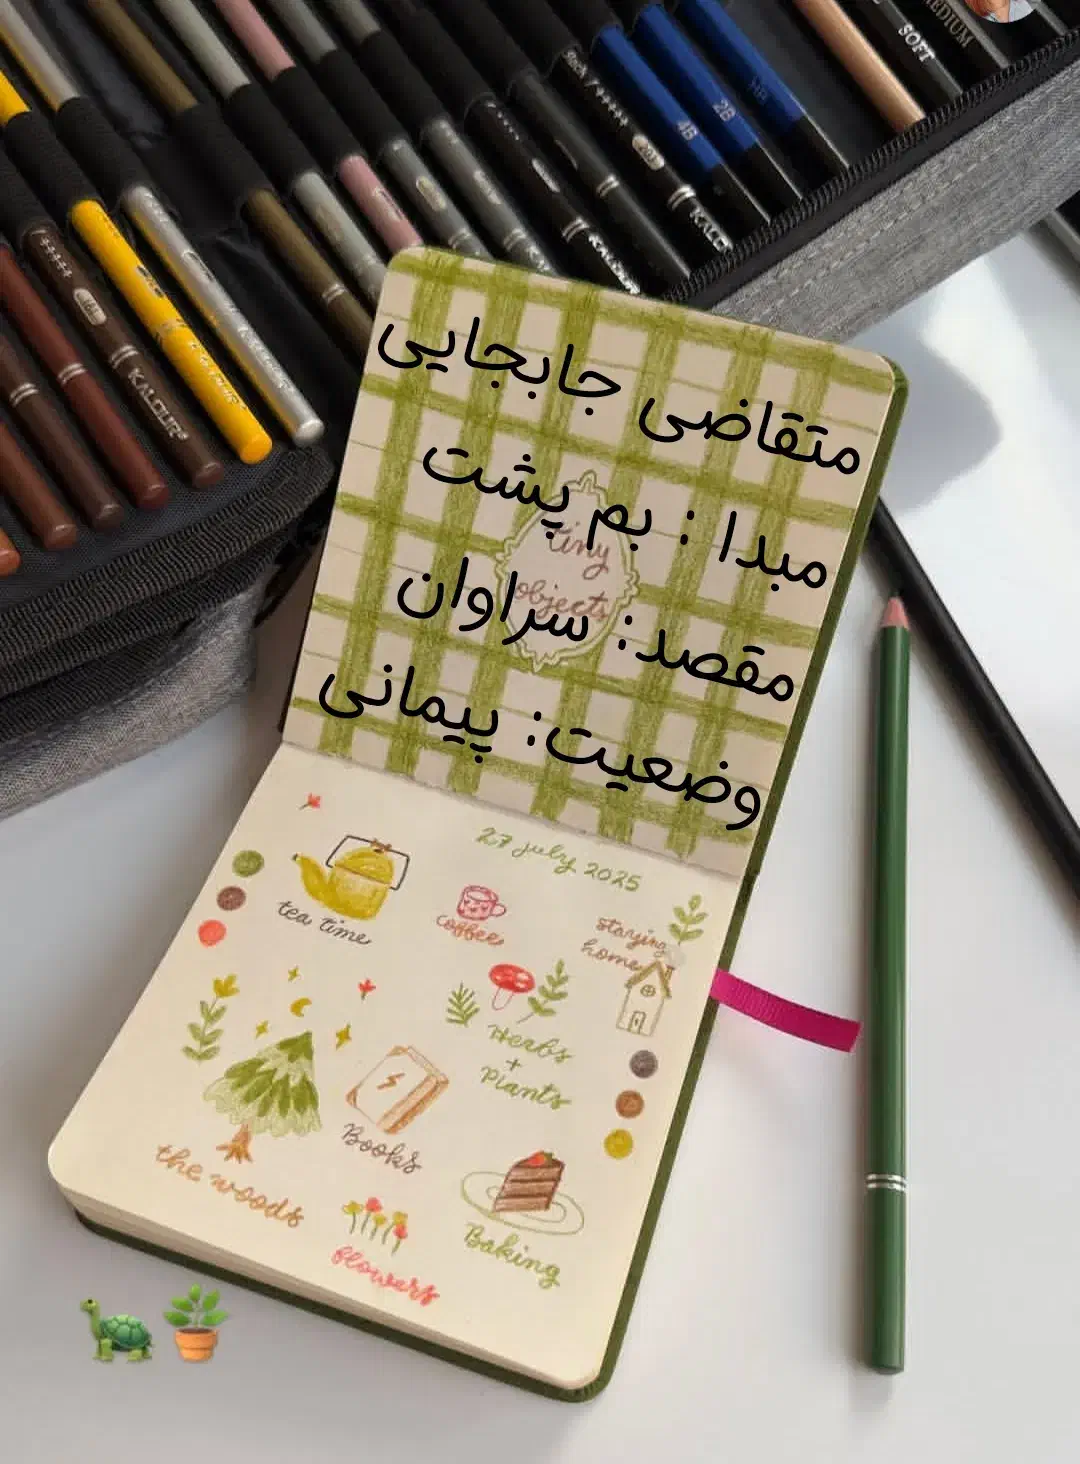 SOFT
MEDIUM
4B
2B
HB
KALOUR
متقاضی جابجایی
مبدا : بم پشت
مقصد: سراوان
وضعیت: پیمانی
tiny
objects
27 july 2025
tea time
coffee
staying
home
Herbs
+
Plants
Books
the woods
Baking
flowers